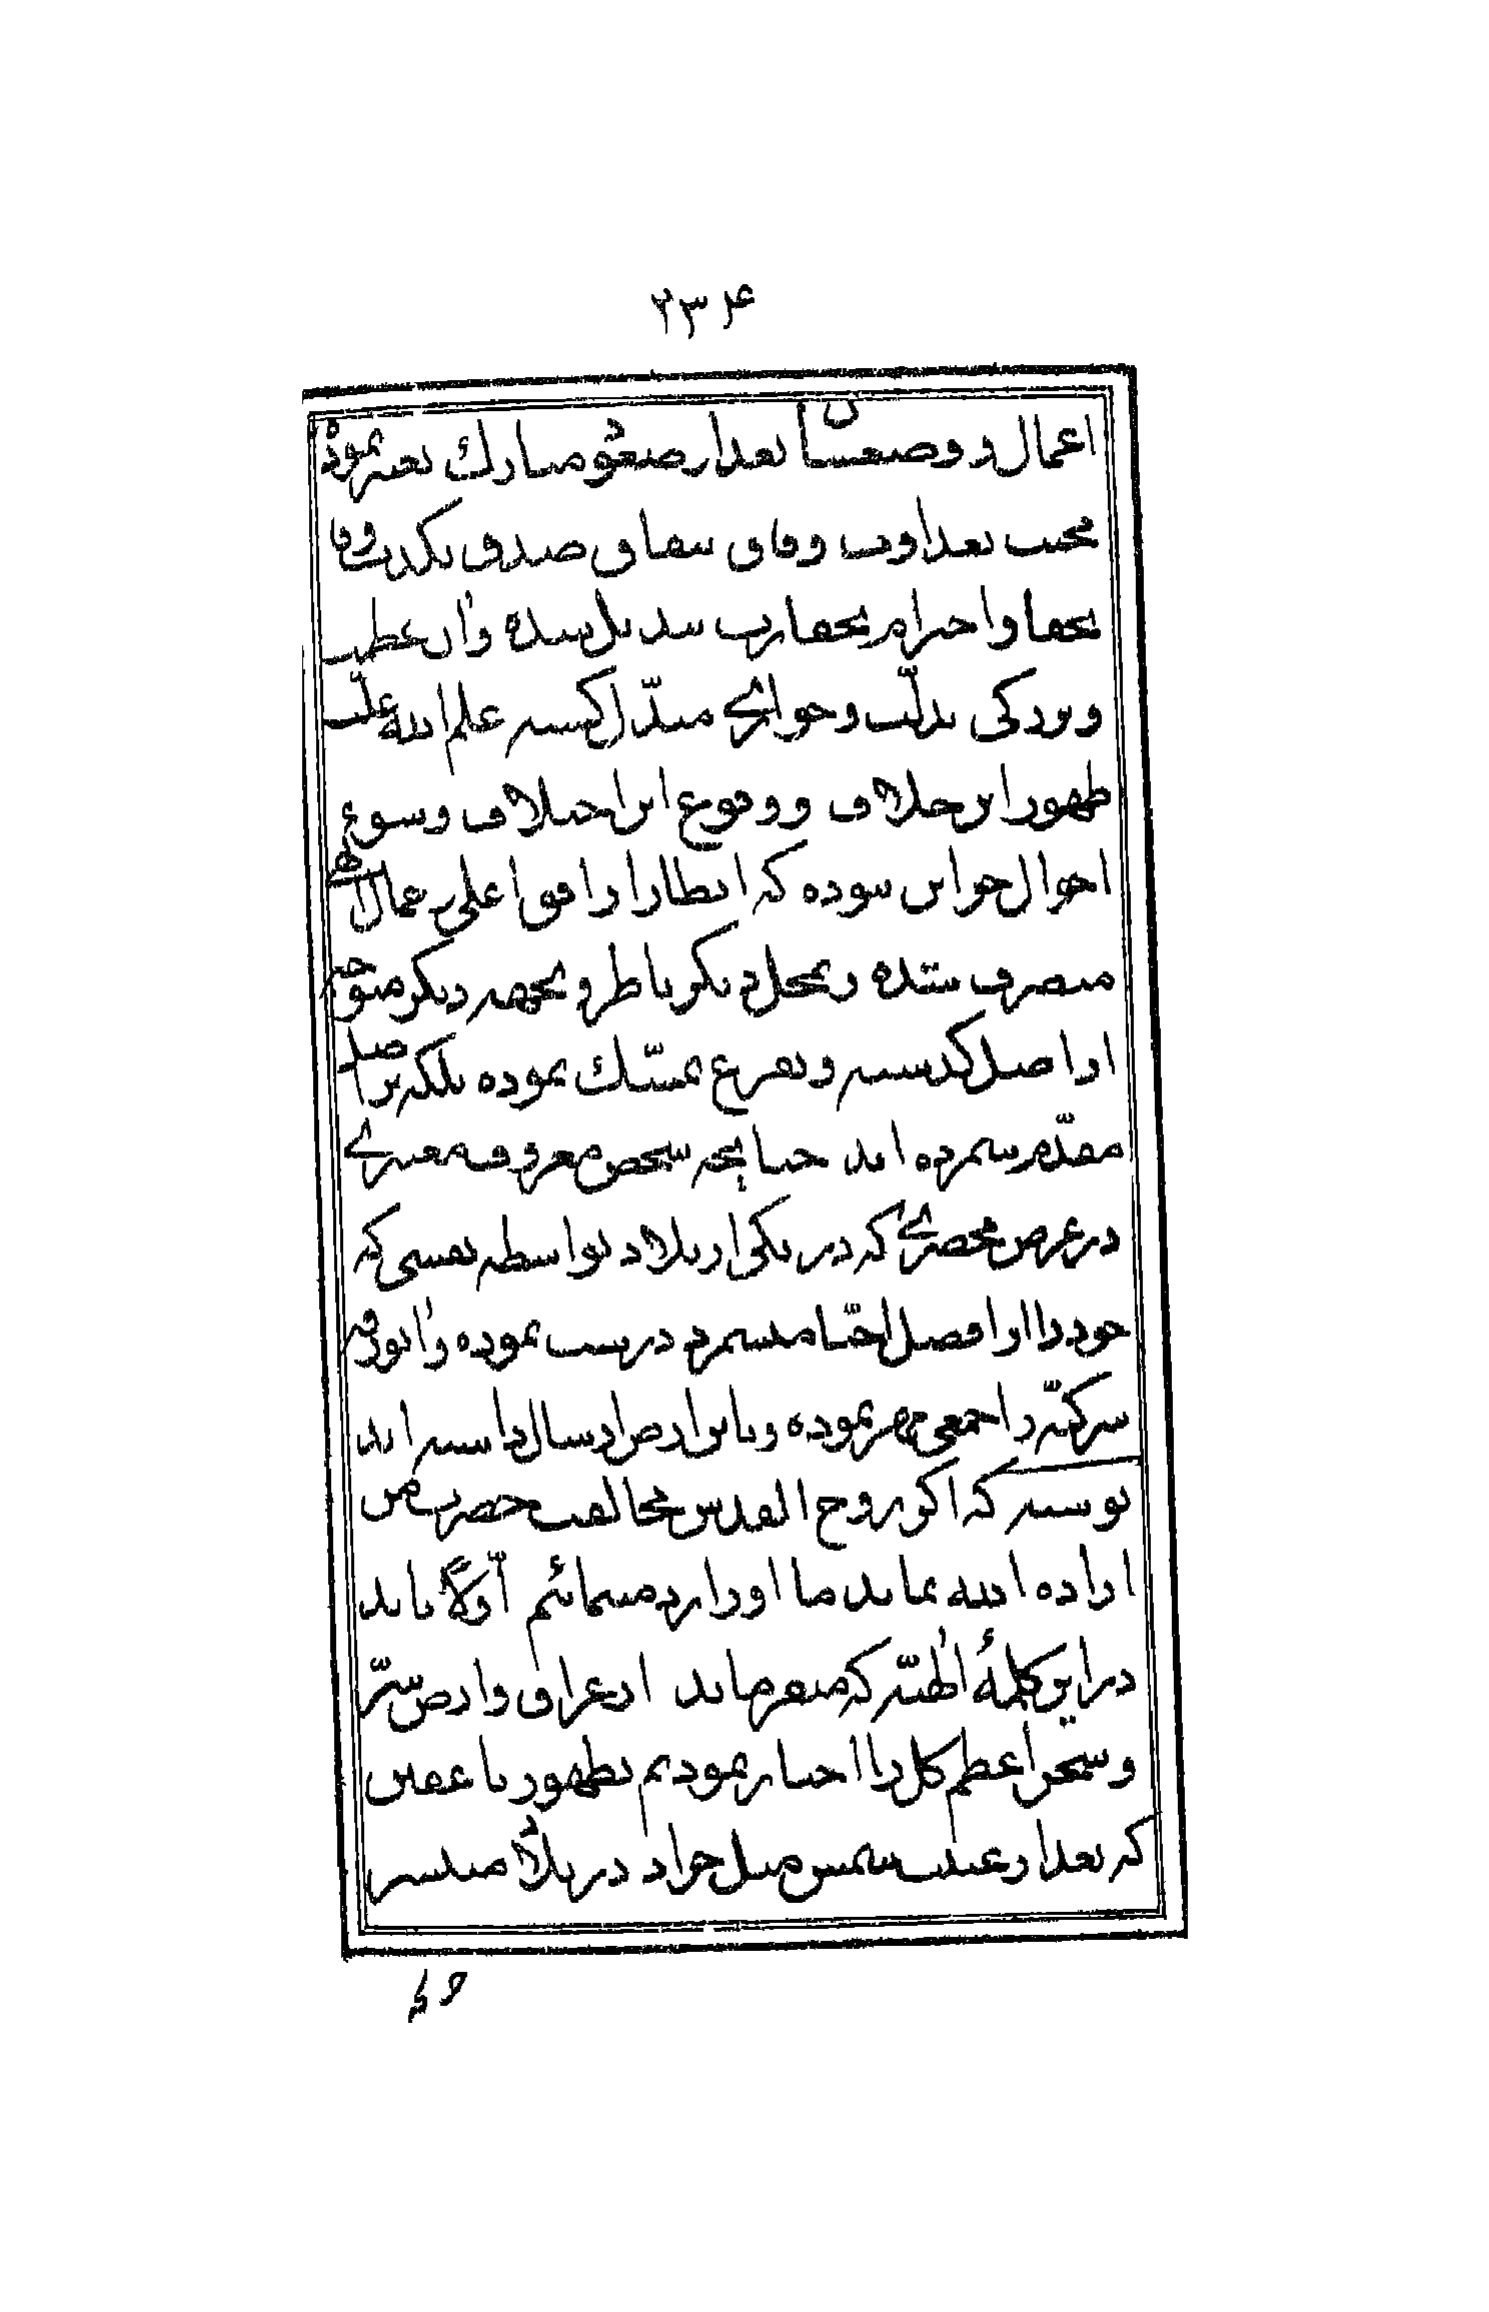 ۲۳۴
اعمال و وضعشان بعد از صعود مبارك تغییر نموده
محبت بعداوت وفاق بنفاق صدق بكذب وفا
بجفا و احترام بحقارت تبدیل شده و آن عظمت
و بزرگی بذلّت و خواری مبدّل گشته علم الله علّت
ظهور این خلاف و وقوع این اختلاف و سوء
احوال جز این نبوده كه انظار از افق اعلی
منصرف شده و بمحل دیگر ناظر و بجهة دیگر متوجه
از اصل گذشته و بفرع تمسّك نموده بلكه بر اصل
مقدّم شمرده اند چنانچه شخص معروف معتبری
در عرض محضری كه در یكی از بلاد بواسطه نفسی كه
خود را از افضل احبّا میشمرد درست نموده و آنورقه
شركیّه را جمعی مهر نموده و باین ارض ارسال داشته اند
نوشته كه اگر روح القدس مخالفت حضرت من
اراده الله نماید ما او را رد مینمائیم اوّلاً باید
در این كلمهٔ الهیّه كه میفرماید از عراق و ارض سرّ
و سجن اعظم كل را اخبار نمودیم بظهور ناعقین
كه بعد از غیبت شمس مثل جراد در بلاد منتشر